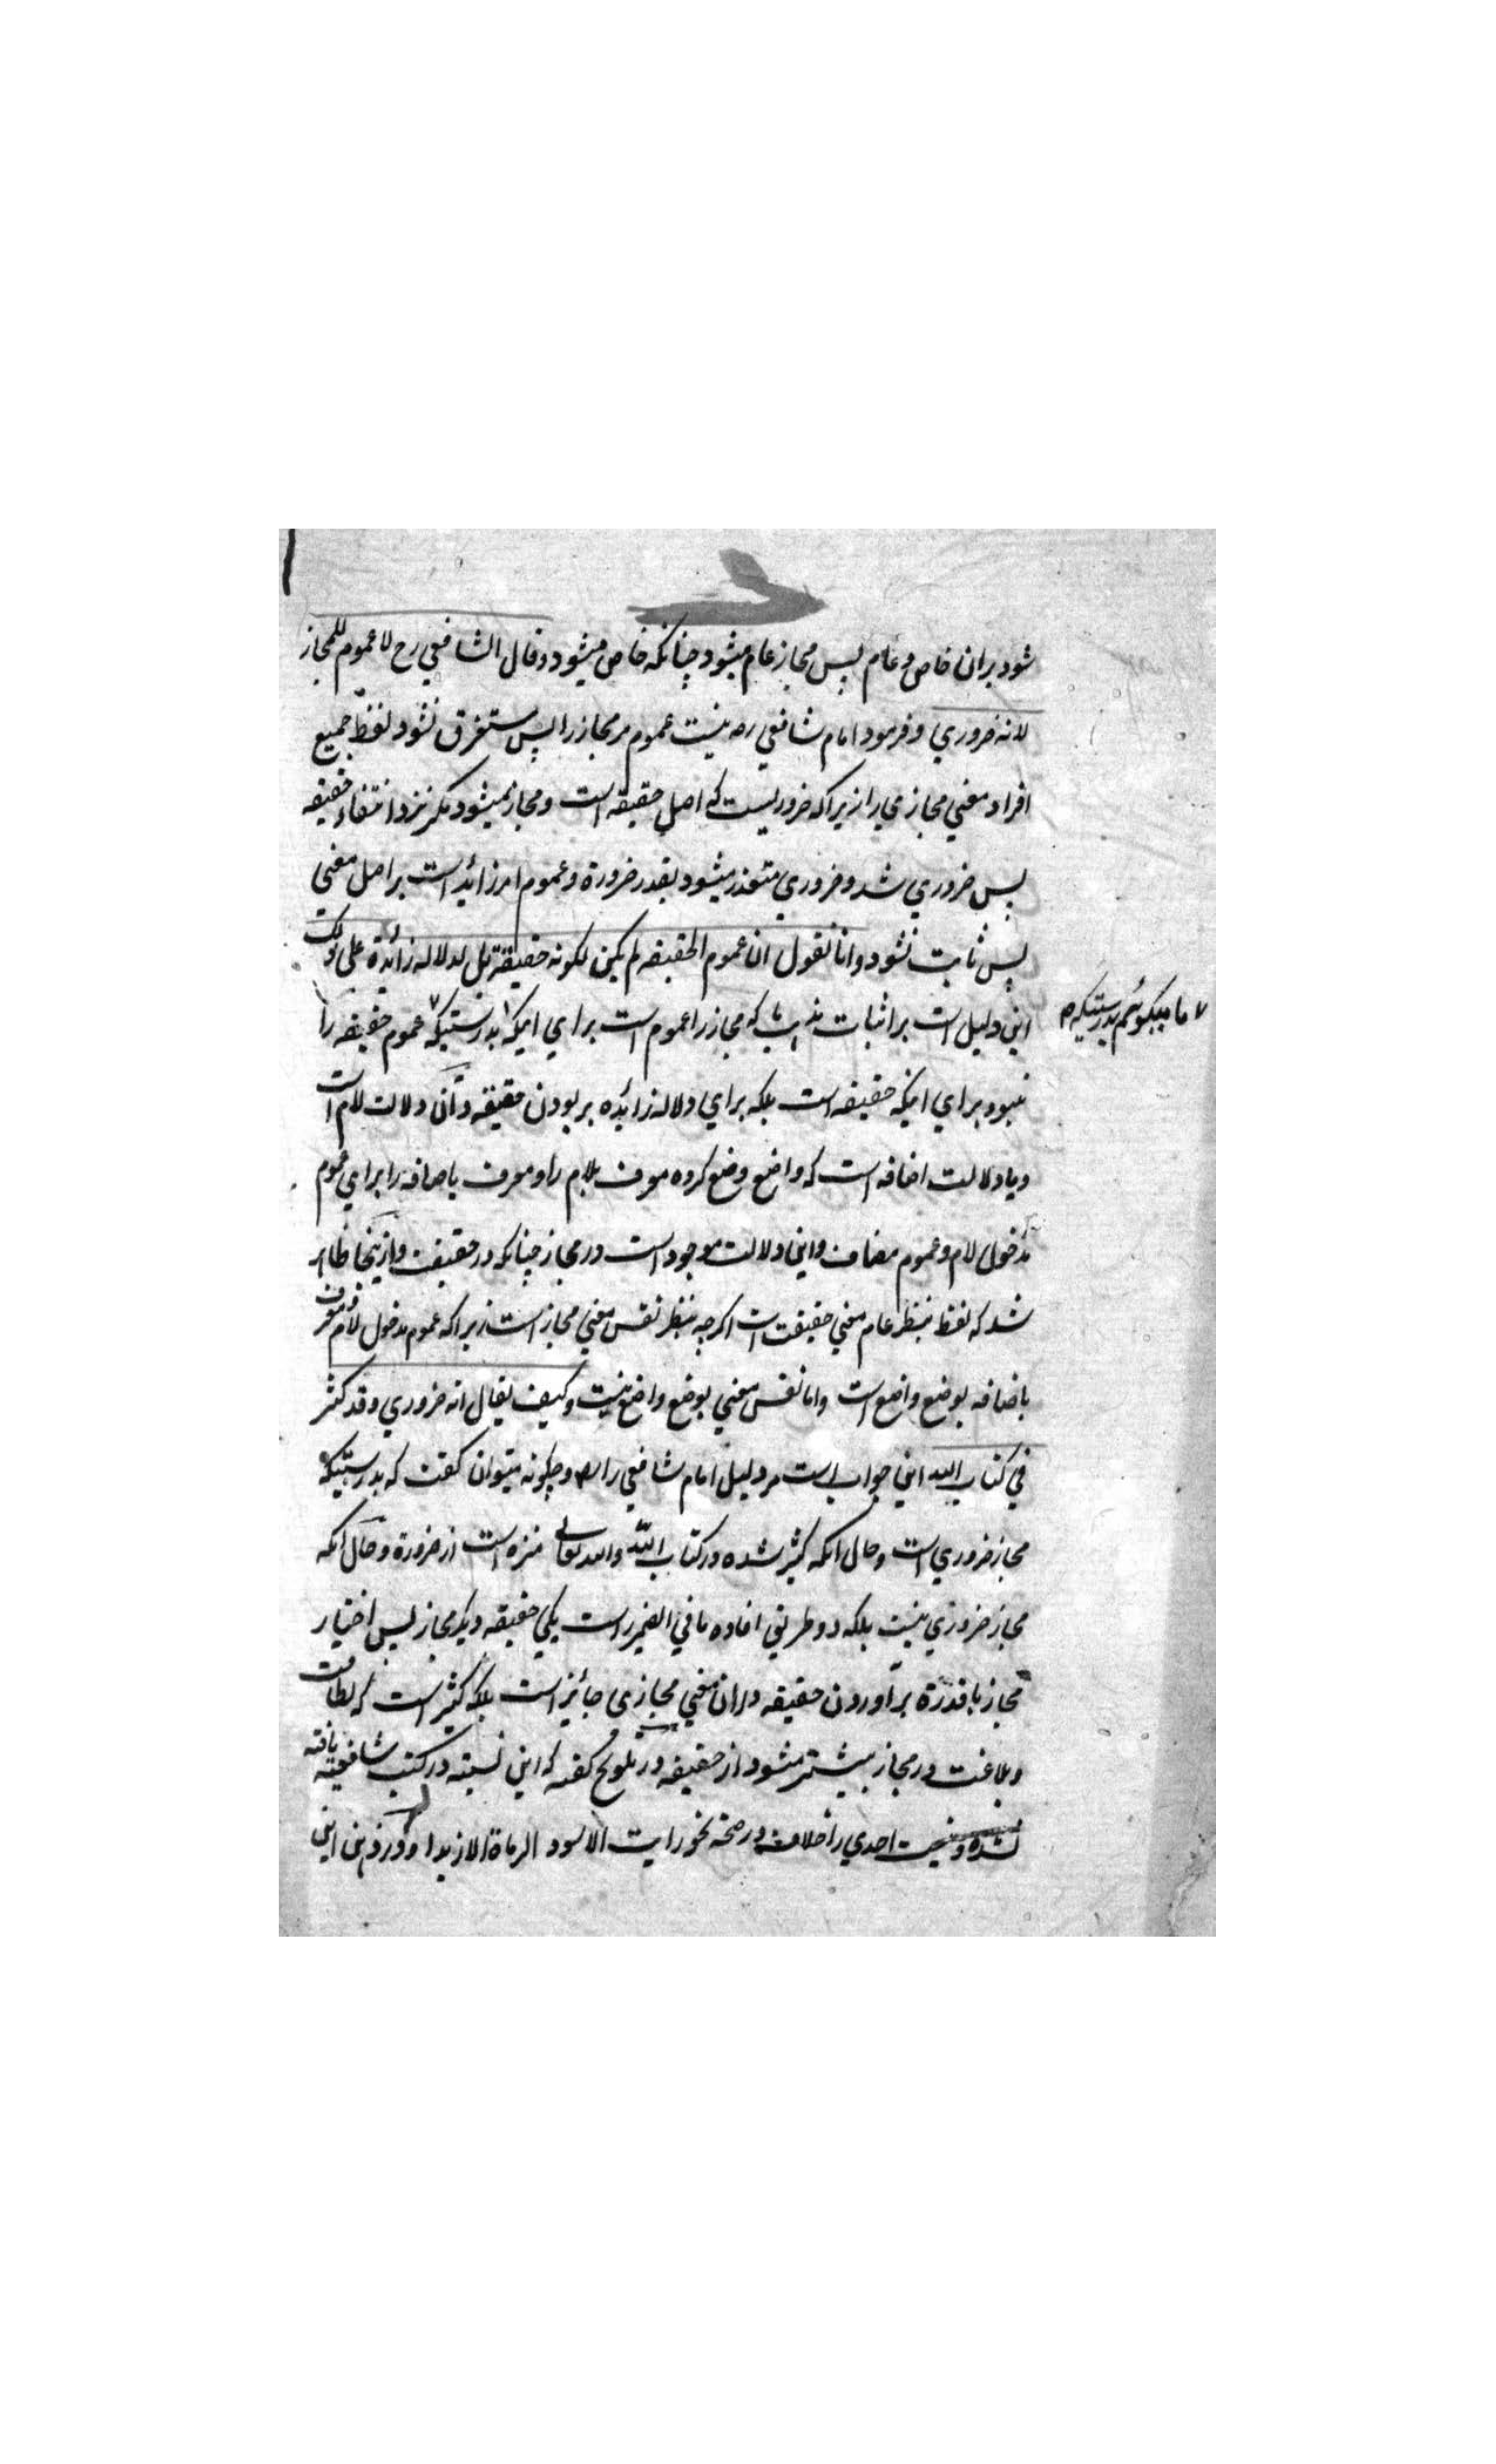 شود بران خاص و عام پس مجاز عام میشود چنانکه خاص میشود وقال الشافعي رح لا عموم للمجاز
لانه ضروري و فرمود امام شافعي ره نیست عموم مر مجاز را پس مستغرق نشود لفظ جمیع
افراد معني مجازي را زیرا که ضروریست که اصل حقیقه است و مجاز نمیشود مگر نزد انتفاء حقیقه
پس ضروري شد و ضروري متقدر میشود بقدر ضرورة و عموم امر زائد است بر اصل معني
پس ثابت نشود وانا نقول ان عموم الحقیقه لم یکن لکونه حقیقة بل لدلاله زائدة علی ذلک
این دلیل است بر اثبات مذهب ما که مجاز را عموم است براي اینکه بدرستیکه عموم حقیقه را
ما میگوئیم بدرستیکه
نبود براي اینکه حقیقه است بلکه براي دلاله زائده بر بودن حقیقه و آن دلالت لام است
و یا دلالت اضافه است که واضع وضع کرده معرف بلام را و معرف باضافه را براي عموم
مدخول لام و عموم مضاف و این دلالت موجود است در مجاز چنانکه در حقیقت و ازینجا ظاهر
شد که لفظ بنظر عام معني حقیقت است اگرچه بنظر نفس معني مجاز است زیرا که عموم مدخول لام و معرف
باضافه بوضع واضع است واما نفس معني بوضع واضع نیست وکیف یقال انه ضروري وقد کثر
في کتاب الله این جواب است مر دلیل امام شافعي را و چگونه میتوان گفت که بدرستیکه
مجاز ضروري است و حال آنکه کثیر شده در کتاب الله والله تعالی منزه است از ضرورة و حال آنکه
مجاز ضروري نیست بلکه دو طریق افاده ما في الضمیر است یکي حقیقه دیگر مجاز پس اختیار
مجاز با قدرة بر آوردن حقیقه دران معني مجازي جائز است بلکه کثیر است که لطافت
و بلاغت در مجاز بیشتر میشود از حقیقه در تلویح گفته که این نسبته در کتب شافعیه یافته
نشده و نیست احدي را خلاف در صحة نحو رایت الاسود الرماة الا زیدا این